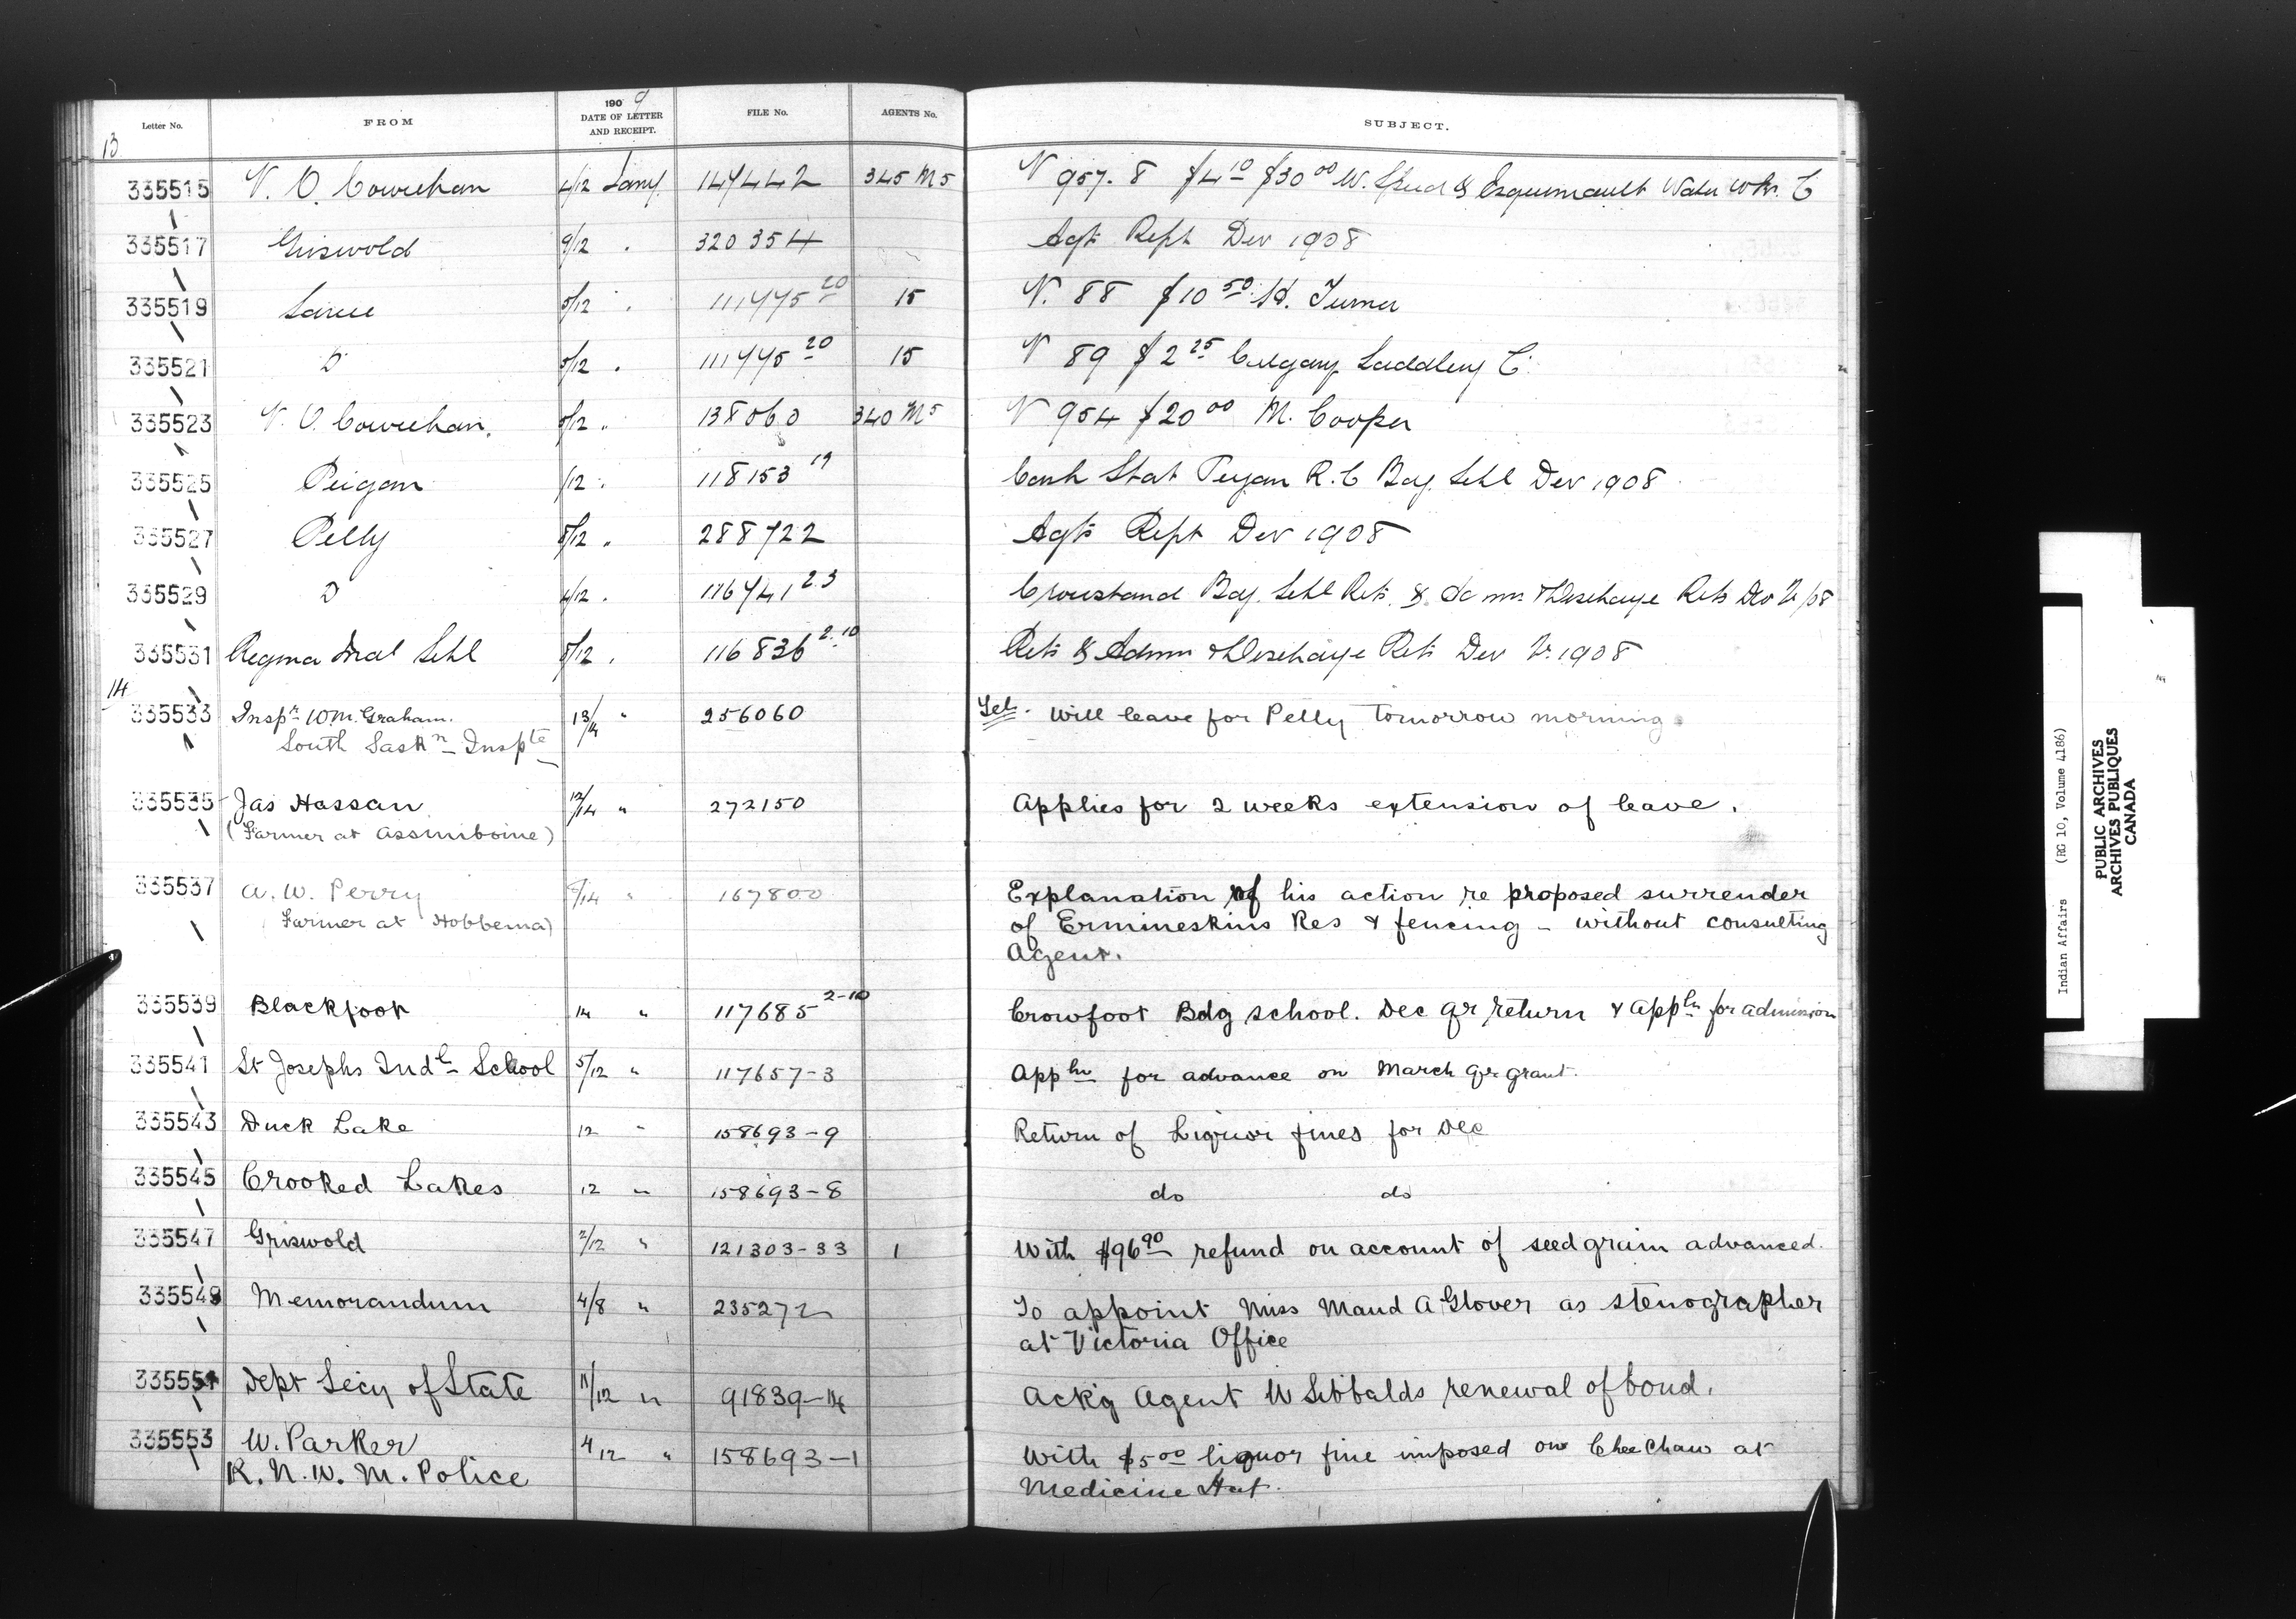 Letter No. FROM 1909 DATE OF LETTER AND RECEIPT. FILE No. AGENTS No. SUBJECT.
13
335515 V. O. Cowichan 4/12 Jany 147442 345 M5 V 957. 8 $4 10 $30 00 W. & Esquimault Water Wks. C
335517 Griswold 9/12 " 320354 Agts Rept Dec 1908
335519 Sarcee 5/12 " 111475 20 15 V. 88 $10 50 H. Turner
335521 D 5/12 " 111475 20 15 V 89 $2 25 Calgary Saddlery C
335523 V. O. Cowichan. 5/12 " 138060 340 M5 V 954 $20 00 M. Cooper
335525 Peigan /12 " 118153 19 Cash Stat Peigan R. C Bdg. Schl Dec 1908
335527 Pelly 8/12 " 288722 Agts Rept Dec 1908
335529 D 4/12 " 116741 2.3 Crowstand Bdg. Schl Rets. & Admn & Discharge Rets Dec Qr /08
335531 Regina Indl Schl 8/12 " 116836 2.10 Rets & Admn & Discharge Rets Dec Qr 1908
14
335533 Inspr Wm. Graham. 13/14 " 256060 Tel. Will leave for Pelly tomorrow morning
South Saskn Inspte
335535 Jas Hassan 12/14 " 272150 Applies for 2 weeks extension of leave.
(Farmer at Assiniboine)
335537 A. W. Perry /14 " 167800 Explanation of his action re proposed surrender
(Farmer at Hobbema) of Ermineskins Res & fencing - without consulting
Agent.
335539 Blackfoot 14 " 117685 2-10 Crowfoot Bdg school. Dec qr return & appln for admission
335541 St Josephs Indl School 5/12 " 117657-3 Appln for advance on March qr grant.
335543 Duck Lake 12 " 158693-9 Return of Liquor fines for Dec
335545 Crooked Lakes 12 " 158693-8 do do
335547 Griswold 2/12 " 121303-33 1 With $96 90 refund on account of seed grain advanced.
335549 Memorandum 4/8 " 235272 To appoint Miss Maud A Glover as stenographer
at Victoria Office
335551 Dept Secy of State 11/12 " 91839-14 Ack'g Agent W Sibbalds renewal of bond.
335553 W. Parker 4/12 " 158693-1 With $5 00 liquor fine imposed on Chee Chaw at
R. N. W. M. Police Medicine Hat.
Indian Affairs (RG 10, Volume 4186)
PUBLIC ARCHIVES
ARCHIVES PUBLIQUES
CANADA